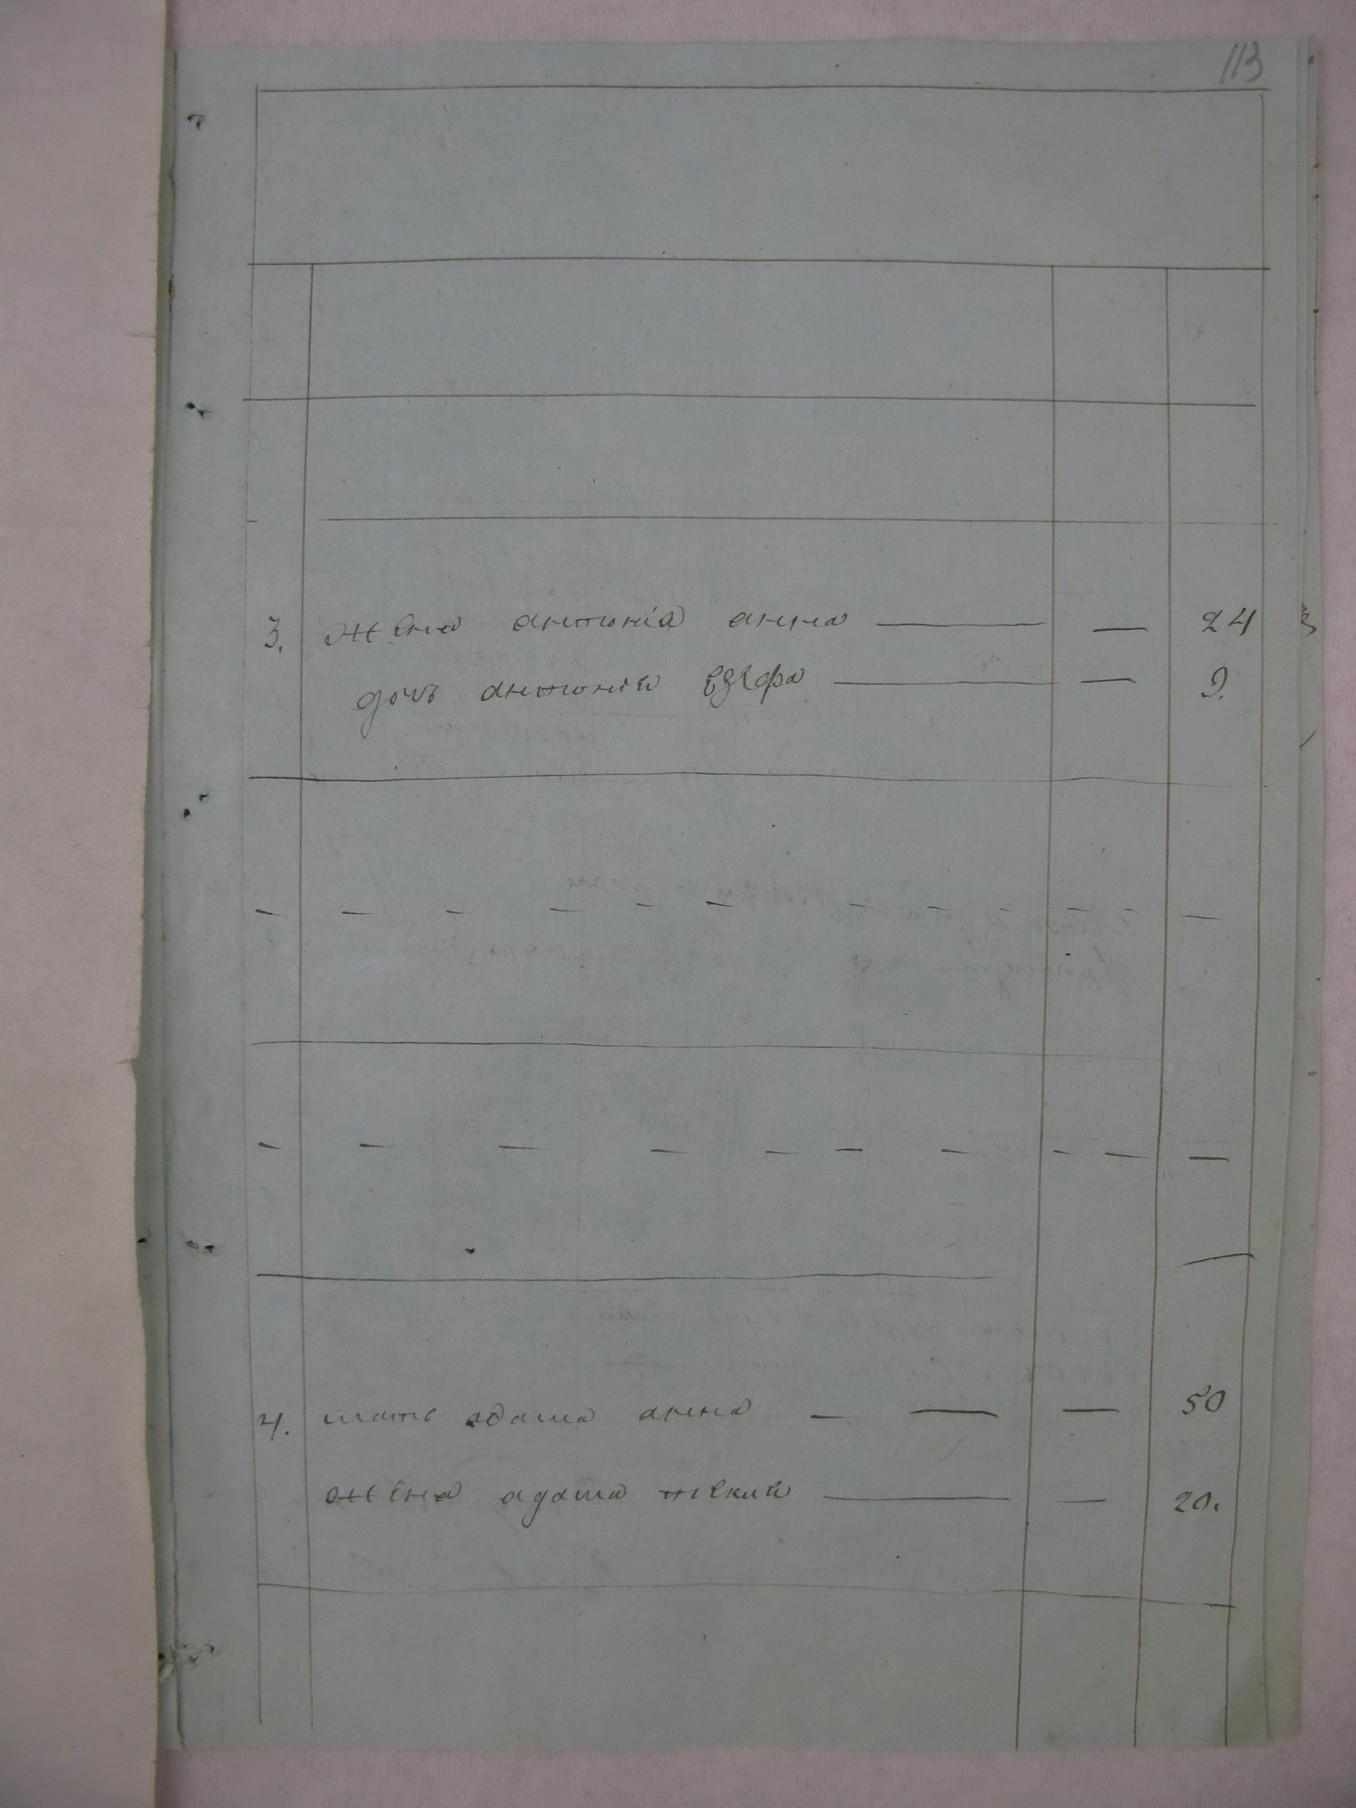 113
3. Жена антонія анна — — 24
дочь антонія Езефа — — 9.
— — — — — — — — — — — —
— — — — — — — — — —
4. мать адама анна — — — 50
жена адама текли — — 20.